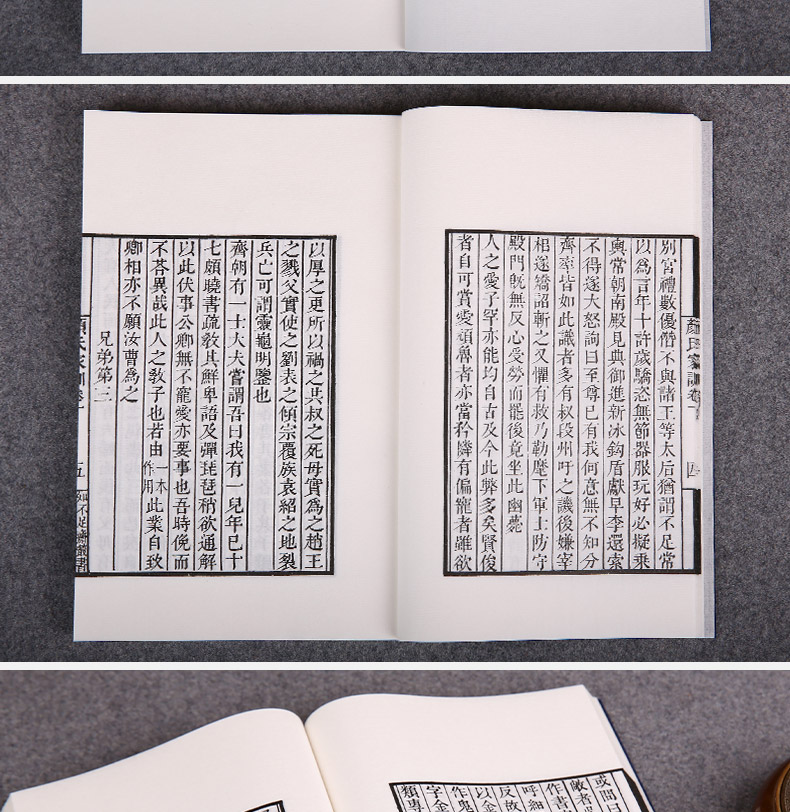 別宮禮數優僭不與諸王等太后猶謂不足常
以為言年十許歲驕恣無節器服玩好必擬乗
輿常朝南殿見典御進新冰鈎盾獻早李還索
不得遂大怒訽曰至尊已有我何意無不知分
齊率皆如此識者多有叔段州吁之譏後嫌宰
相遂矯詔斬之又懼有救乃勒麾下軍士防守
殿門既無反心受勞而罷後竟坐此幽薨
人之愛子罕亦能均自古及今此弊多矣賢俊
者自可賞愛頑魯者亦當矜憐有偏寵者雖欲
顏氏家訓卷
四
以厚之更所以禍之共叔之死母實為之趙王
之戮父實使之劉表之傾宗覆族袁紹之地裂
兵亡可謂靈龜明鑒也
齊朝有一士大夫嘗謂吾曰我有一兒年已十
七頗曉書疏敎其鮮卑語及彈琵琶稍欲通解
以此伏事公卿無不寵愛亦要事也吾時俛而
不荅異哉此人之敎子也若由一本作用此業自致
卿相亦不願汝曹為之
兄弟第三
五
知不足齋叢書
或問曰
敵者
作書
呼細
反故
以金
作鬼
字金
類專